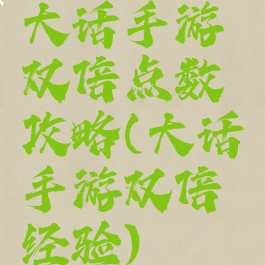 大话手游
双倍点数
攻略(大话
手游双倍
经验)